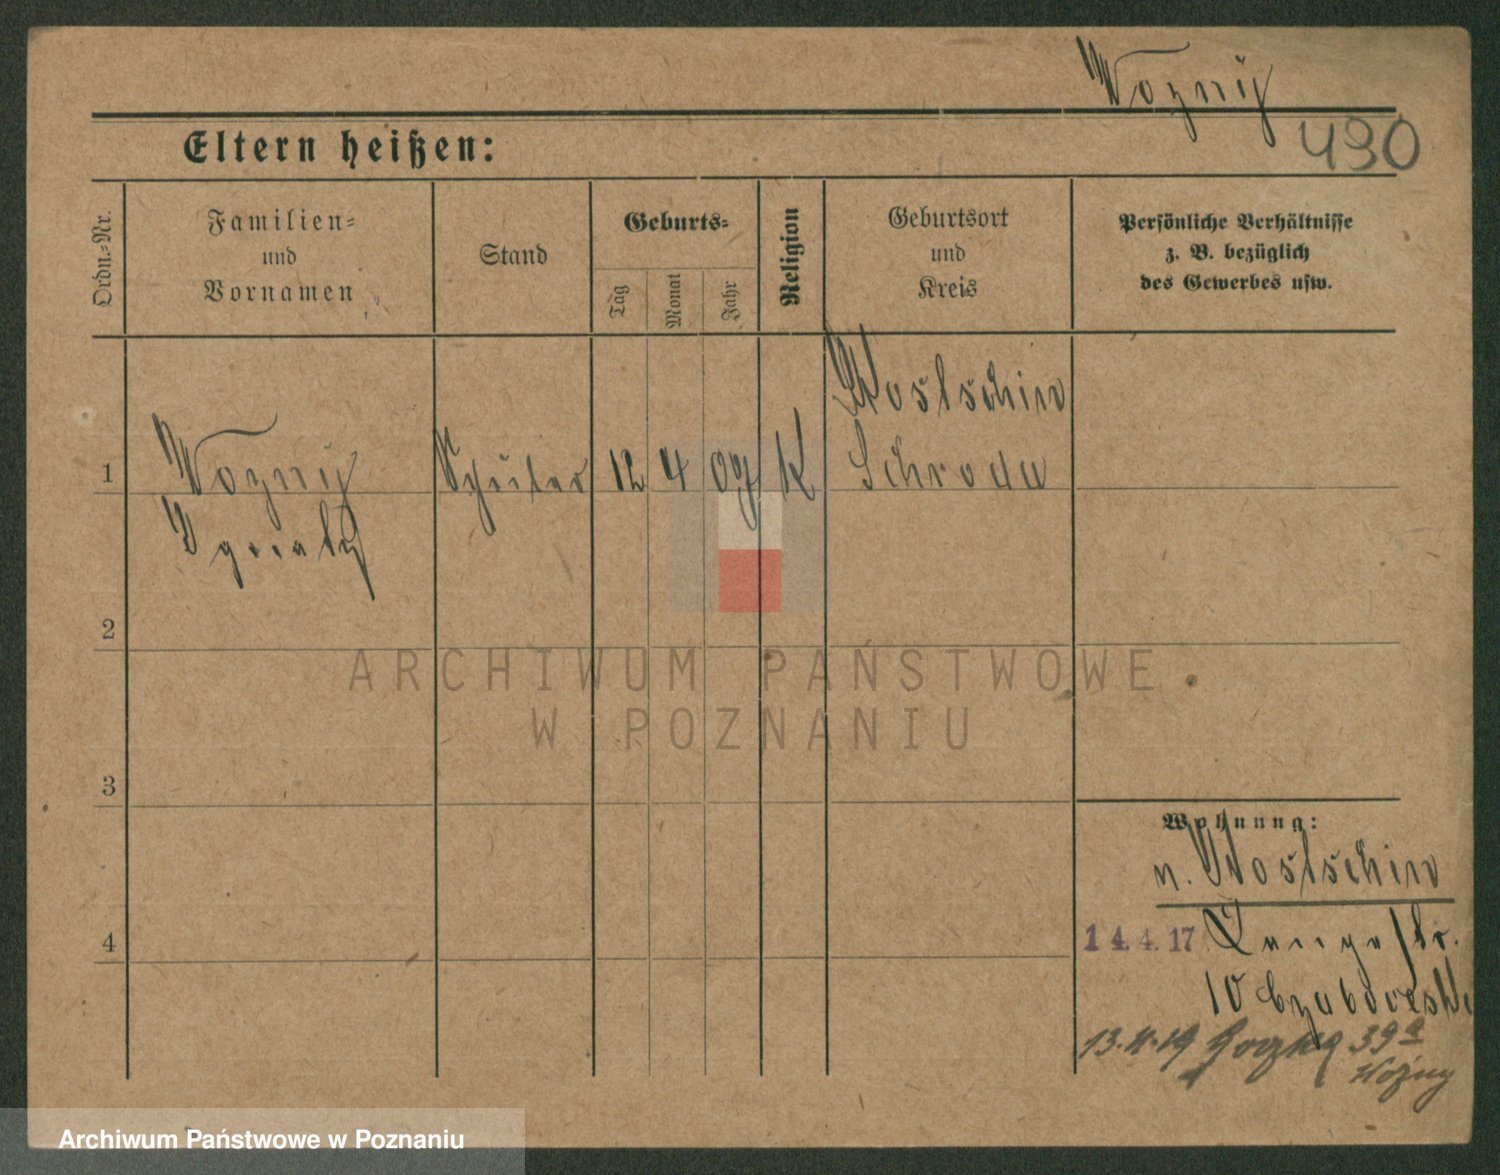 Wozny
490
Eltern heißen:
Ordn.=Nr.
Familien=
und
Vornamen
Stand
Geburts=
Tag
Monat
Jahr
Religion
Geburtsort
und
Kreis
Persönliche Verhältnisse
z. B. bezüglich
des Gewerbes usw.
1
Wozny
Ignatz
Schüler
12
4
09
K
Wostschin
Schroda
2
3
4
Wohnung:
n. Wostschin
14.4.17 Langestr.
10 b
13. 19 39a
Woźny
ARCHIWUM PAŃSTWOWE
W POZNANIU
Archiwum Państwowe w Poznaniu